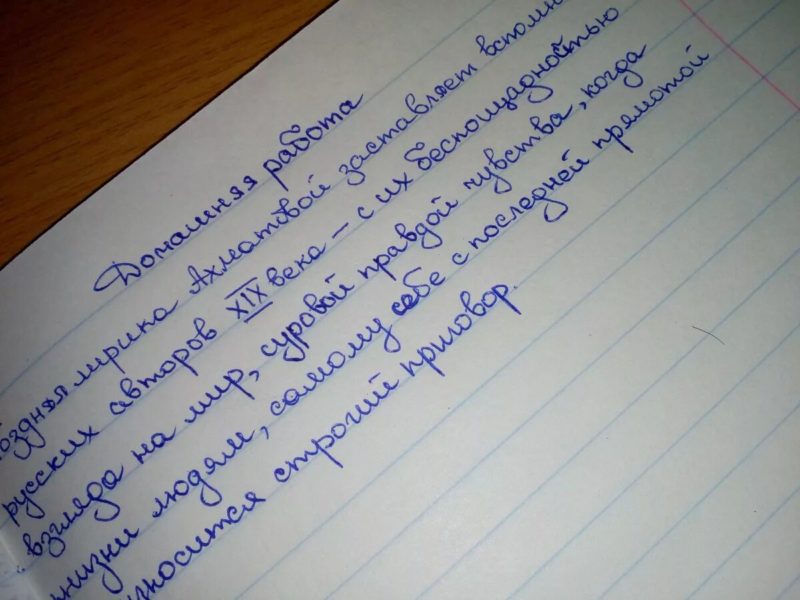 Домашняя работа
оздняя лирика Ахматовой заставляет вспомн
русских авторов XIX века – с их беспощадностью
взгляда на мир, суровой правдой чувства, когда
жизни людям, самому себе с последней прямотой
носится строгий приговор.